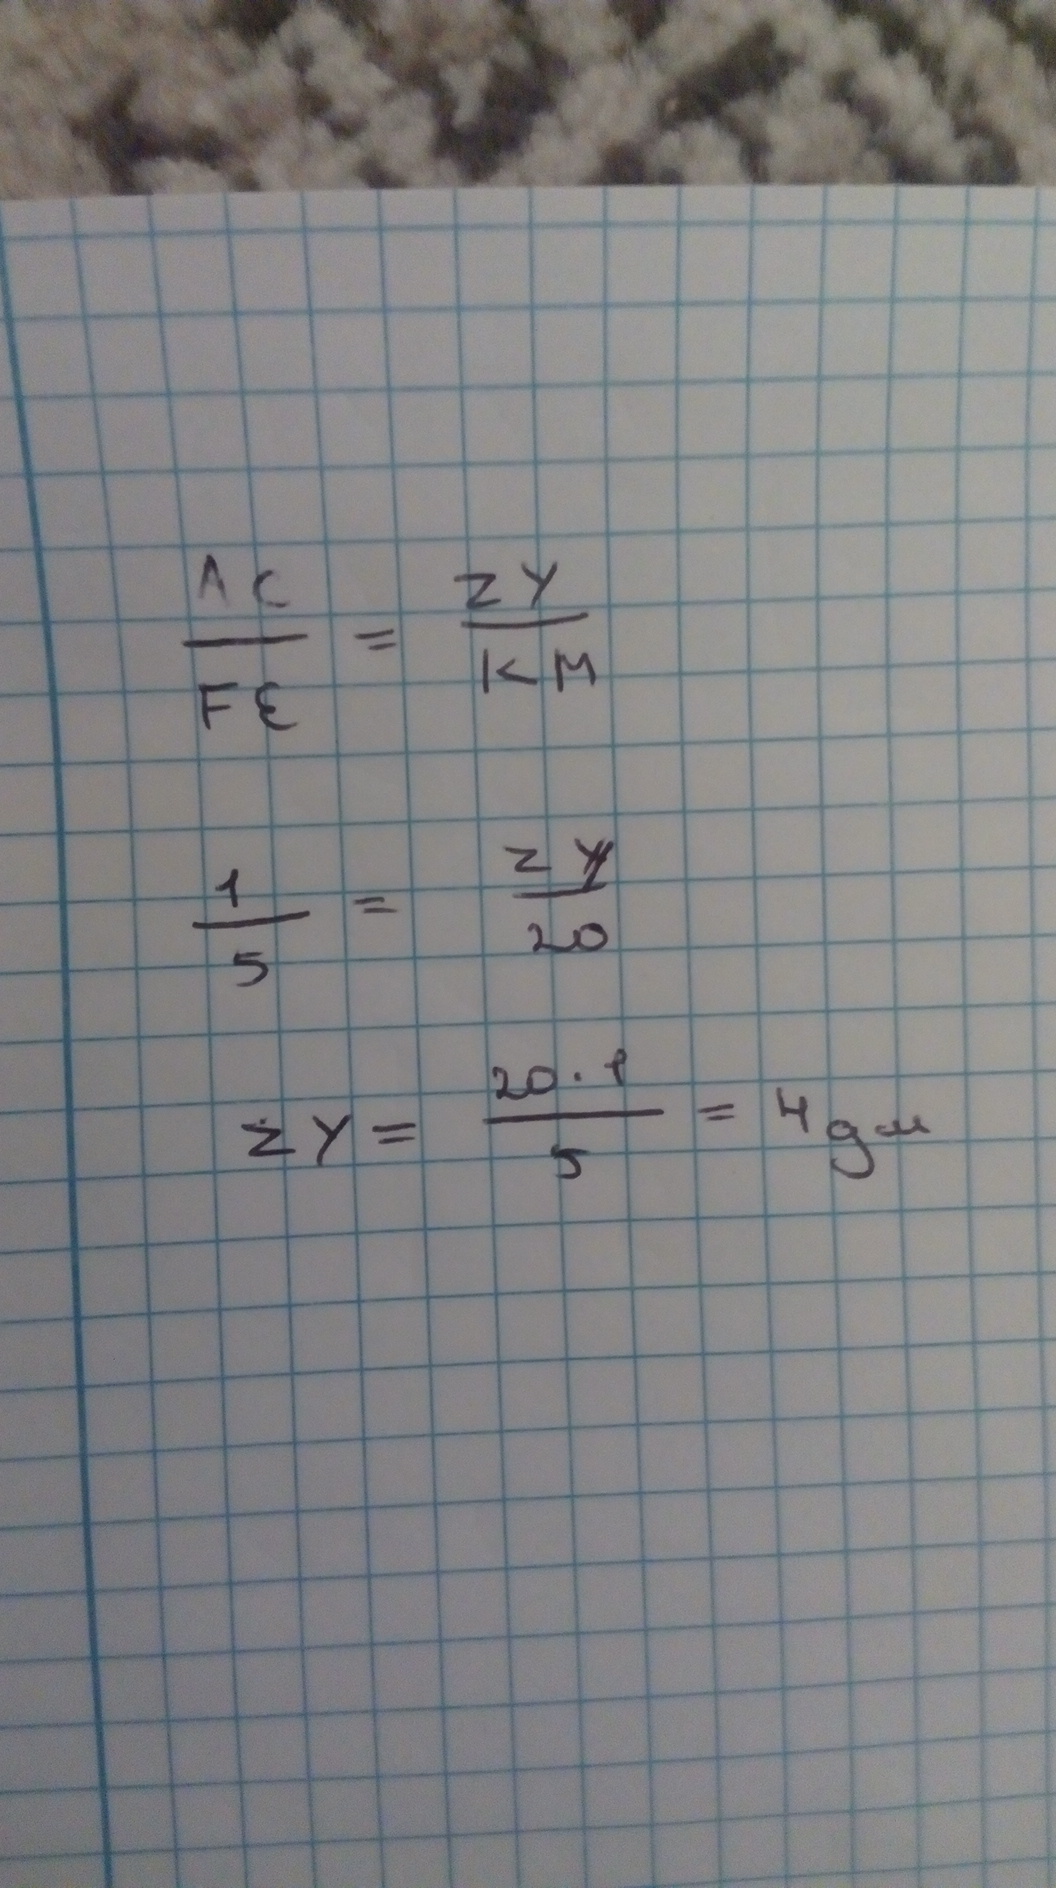 AC/FE = ZY/KM
1/5 = ZY/20
ZY = 20·1/5 = 4 дм